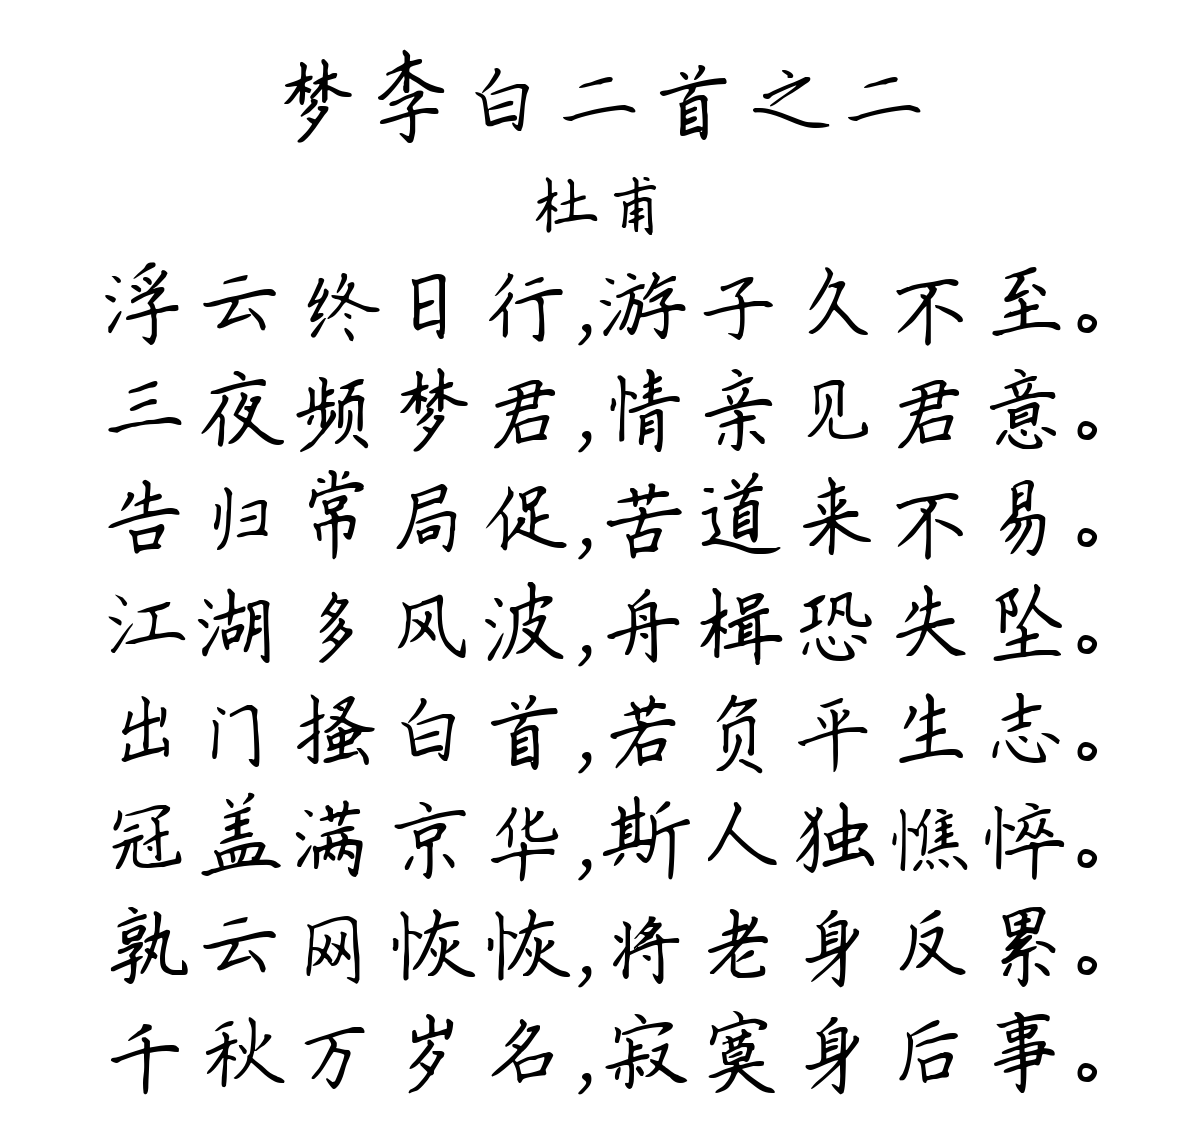 梦李白二首之二
杜甫
浮云终日行,游子久不至。
三夜频梦君,情亲见君意。
告归常局促,苦道来不易。
江湖多风波,舟楫恐失坠。
出门搔白首,若负平生志。
冠盖满京华,斯人独憔悴。
孰云网恢恢,将老身反累。
千秋万岁名,寂寞身后事。